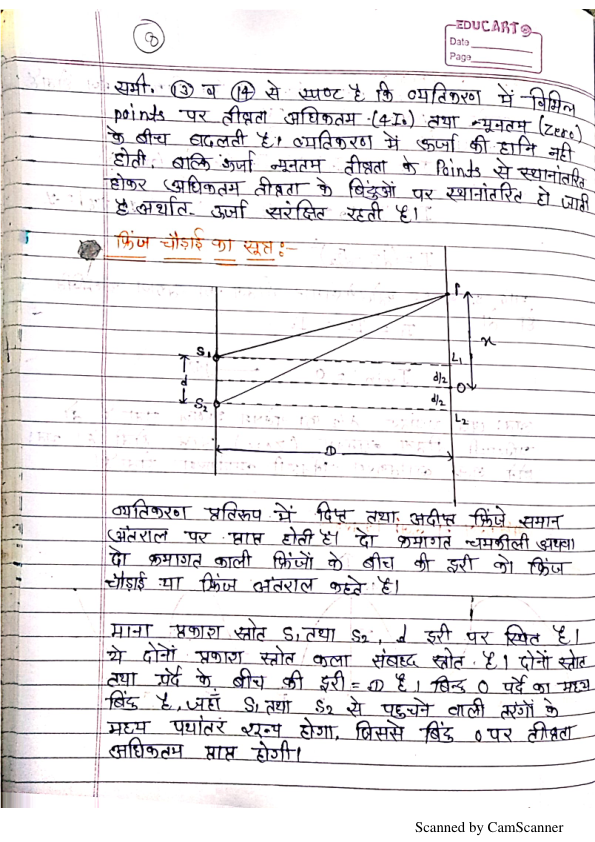 8
EDUCART
Date
Page
समी. (13) व (14) से स्पष्ट है कि व्यतिकरण में विभिन्न
points पर तीव्रता अधिकतम (4I0) तथा न्यूनतम (Zero)
के बीच बदलती है। व्यतिकरण में ऊर्जा की हानि नही
होती, बल्कि ऊर्जा न्यूनतम तीव्रता के Points से स्थानांतरित
होकर अधिकतम तीव्रता के बिंदुओं पर स्थानांतरित हो जाती
है अर्थात ऊर्जा संरक्षित रहती है।
फ्रिंज चौड़ाई का सूत्र :-
P
x
S1
L1
d/2
d
O
d/2
S2
L2
D
व्यतिकरण प्रतिरूप में दिप्त तथा अदीप्त फ्रिंजे समान
अंतराल पर प्राप्त होती है। दो क्रमागत चमकीली अथवा
दो क्रमागत काली फ्रिंजों के बीच की दूरी को फ्रिंज
चौड़ाई या फ्रिंज अंतराल कहते है।
माना प्रकाश स्त्रोत S1 तथा S2, d दूरी पर स्थित है।
ये दोनों प्रकाश स्त्रोत कला संबद्ध स्त्रोत है। दोनों स्त्रोत
तथा पर्दे के बीच की दूरी = D है। बिन्दु O पर्दे का मध्य
बिंदु है, जहाँ S1 तथा S2 से पहुचने वाली तरंगों के
मध्य पथांतर शून्य होगा, जिससे बिंदु O पर तीव्रता
अधिकतम प्राप्त होगी।
Scanned by CamScanner